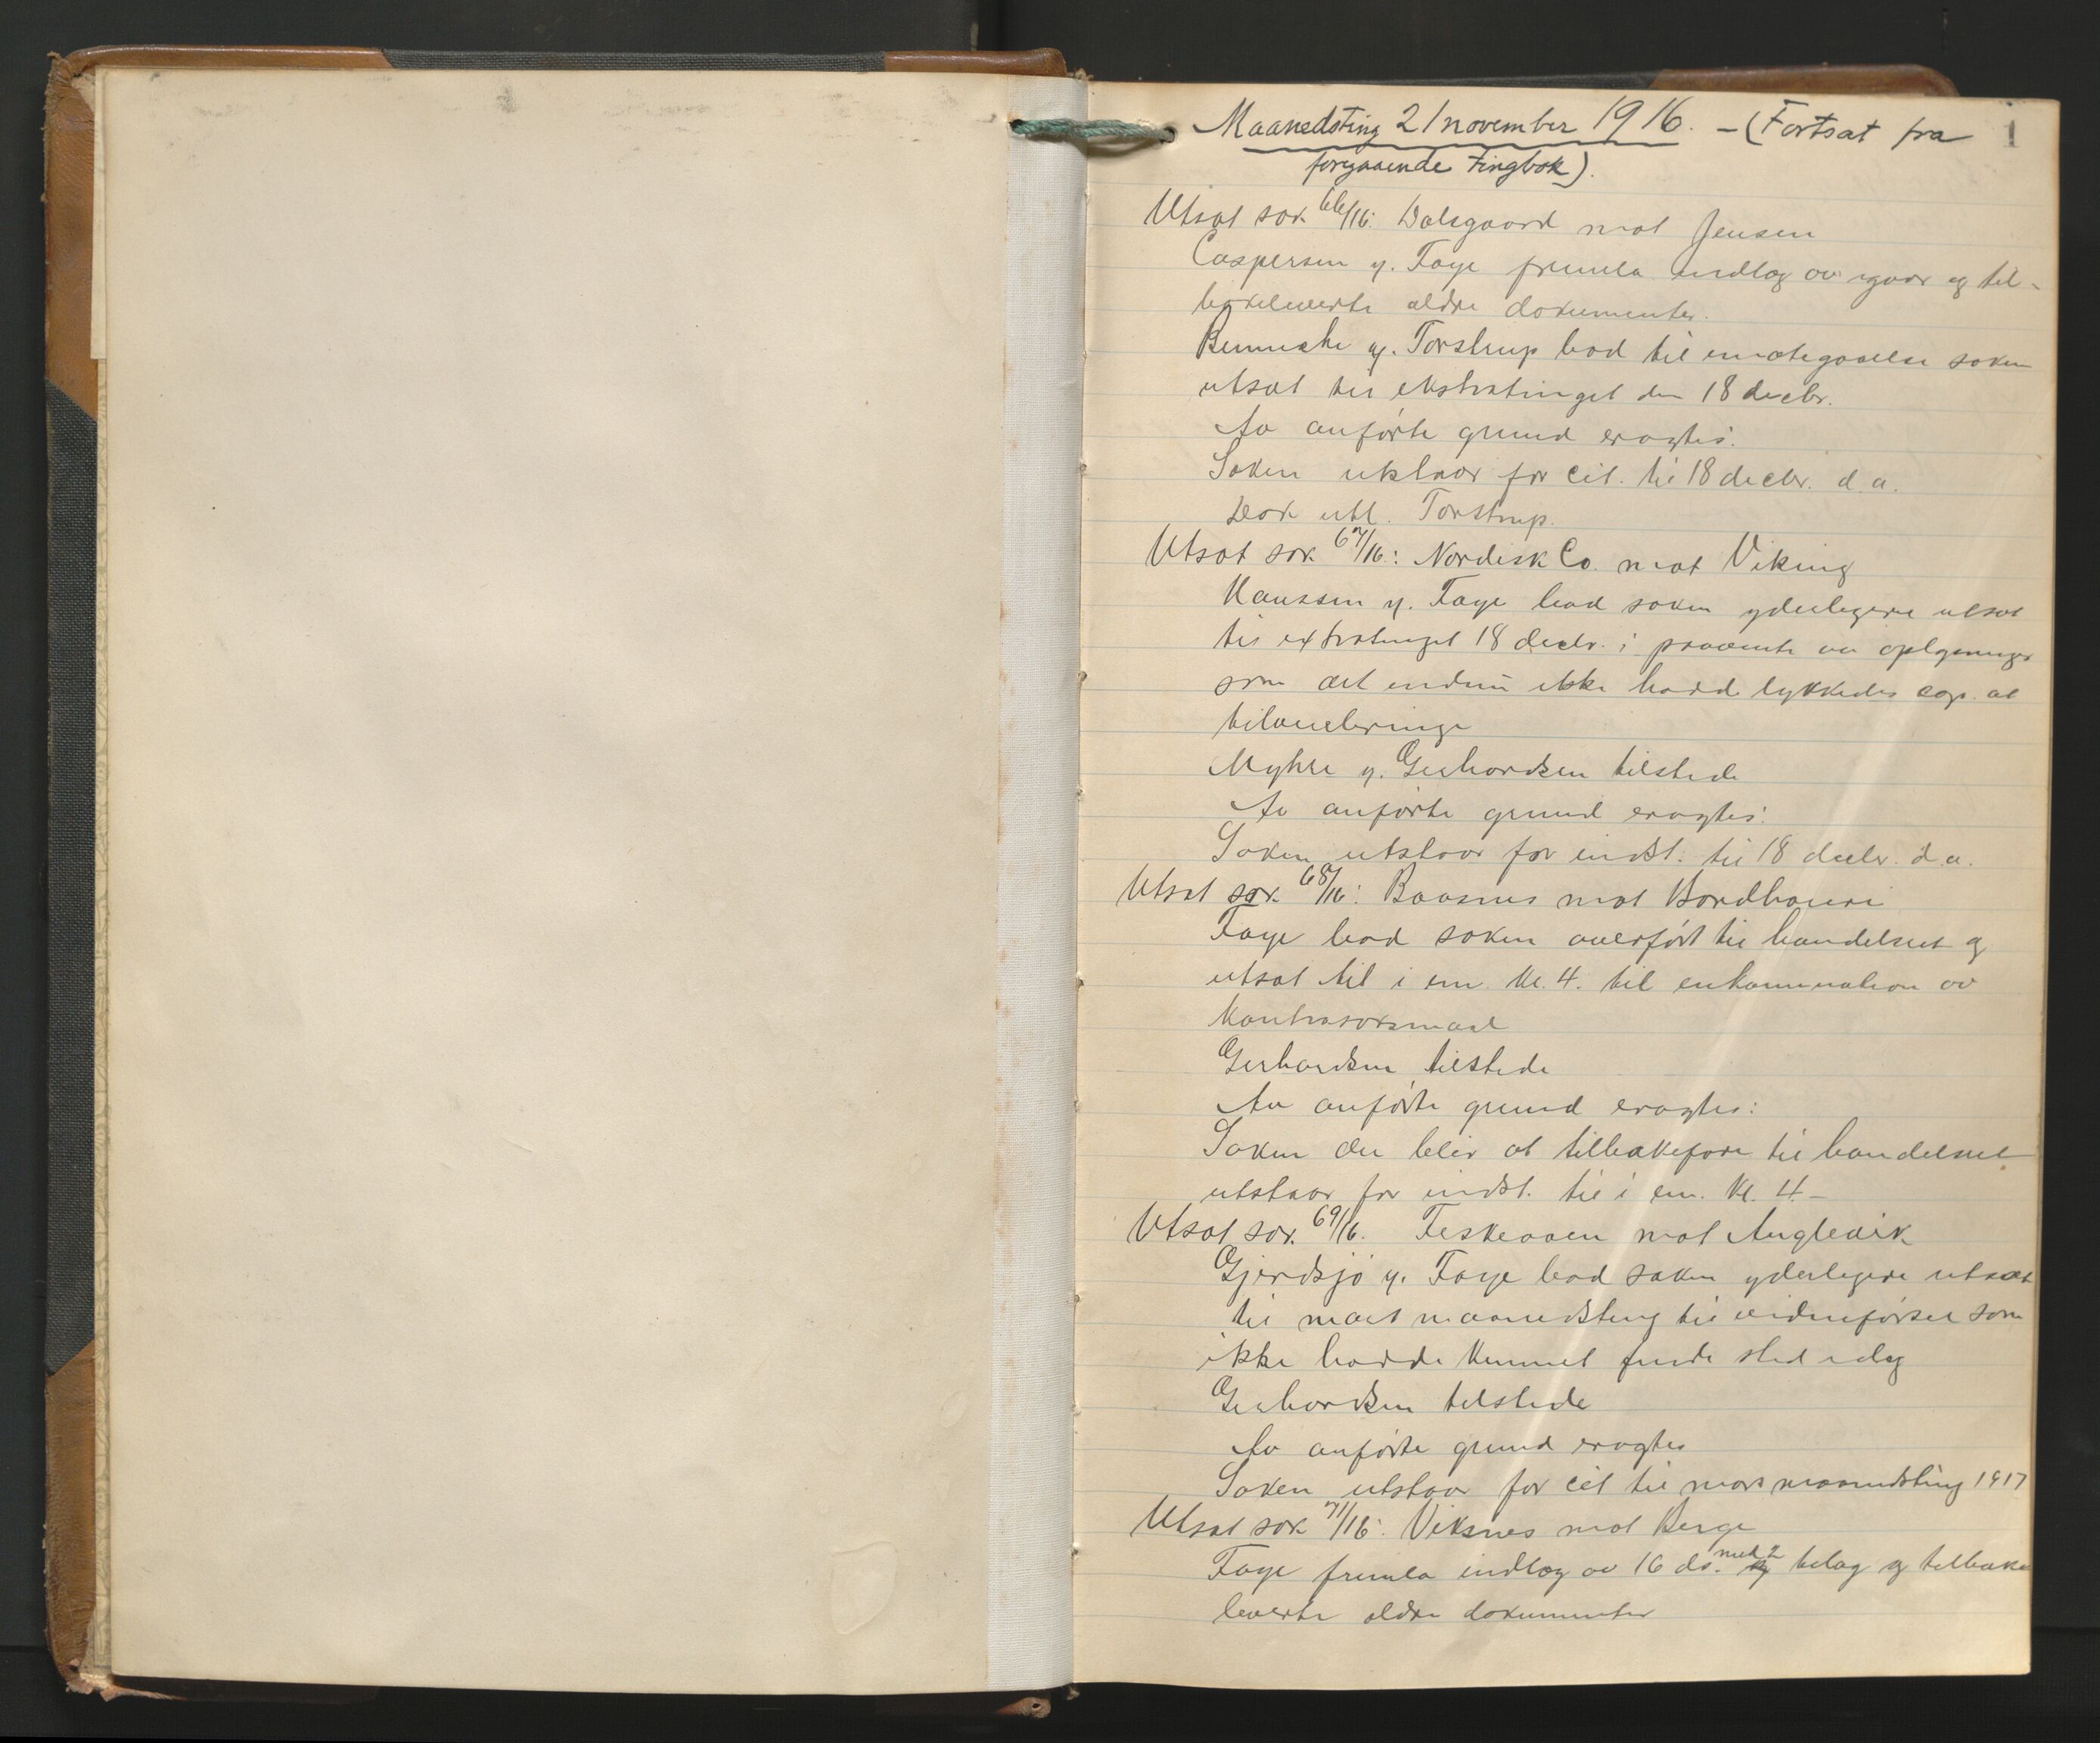 Maanedsting 21 november 1916. - (Fortsat fra
1
foregaaende tingbok).
Utsat sak 66/16: Dalsgaard mot Jensen
Caspersen y. Faye fremla indlæg av igaar og til-
bakeleverte ældre dokumenter.
y. Torstrup bad til imøtegaaelse saken
utsat til ekstratinget den 18 decbr.
Av anførte grund eragtes:
Saken utstaar for cit. til 18 decbr. d.a.
Dok utl. Torstrup.
Utsat sak 67/16: Nordisk Co. mot Viking
Hanssen y. Faye bad saken yderligere utsat
til extratinget 18 decbr. i paavente av oplysninger
som det endnu ikke hadde lykkedes cop. at
tilveiebringe
Myhre y. Gerhardsen tilstede
Av anførte grund eragtes:
Saken utstaar for indst. til 18 decbr. d.a.
Utsat sak 68/16: Baasnes mot
Faye bad saken overført til handelsret og
utsat til i em. kl. 4. til inkamination av
kontrasøksmaal
Gerhardsen tilstede
Av anførte grund eragtes:
Saken der blir at tilbakeføre til handelsret
utstaar for indst. til i em. kl. 4 -
Utsat sak 69/16. mot Anglevik
Gjerdsjø y. Faye bad saken yderligere utsat
til mars maanedsting til vidneførsel som
ikke hadde kunnet finde sted idag
Gerhardsen tilstede
Av anførte grund eragtes
Saken utstaar for cit til mars maanedsting 1917
Utsat sak 71/16: Viksnes mot Berge
Faye fremla indlæg av 16 ds. med 2 bilag og tilbake
leverte ældre dokumenter